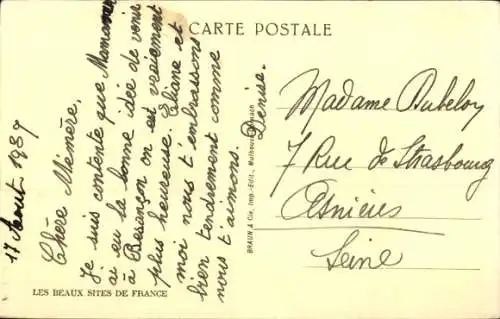 CARTE POSTALE
17 Août 1937
Chère Mémère,
Je suis contente que Maman
ai eu la bonne idée de venir
à Besançon on est vraiement
plus heureuse. Eliane et
moi nous t'embrassons
bien tendrement comme
nous t'aimons. Denise.
BRAUN & Cie, Imp.-Édit., Mulhouse
Madame Dubeloy
7 Rue de Strasbourg
Asnières
Seine
LES BEAUX SITES DE FRANCE